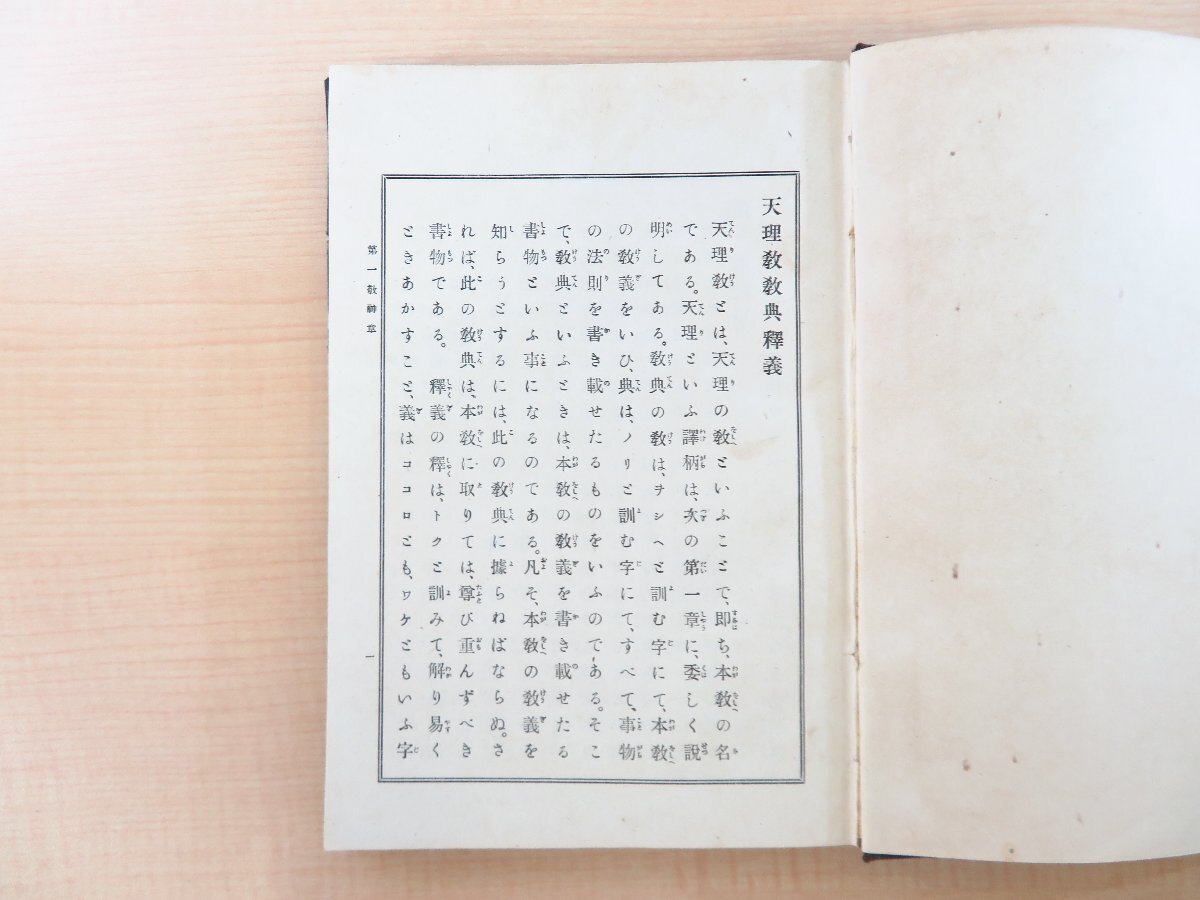 天理敎敎典釋義
天理敎とは、天理の敎といふことで、即ち、本敎の名
である。天理といふ譯柄は、次の第一章に、委しく說
明してある。敎典の敎は、ヲシヘと訓む字にて、本敎
の敎義をいひ、典は、ノリと訓む字にて、すべて、事物
の法則を書き載せたるものをいふのである。そこ
で、敎典といふときは、本敎の敎義を書き載せたる
書物といふ事になるのである。凡そ、本敎の敎義を
知らうとするには、此の敎典に據らねばならぬ。さ
れば、此の敎典は、本敎に取りては、尊び重んずべき
書物である。　釋義の釋は、トクと訓みて、解り易く
ときあかすこと、義はココロとも、ワケともいふ字
第一敬神章
一